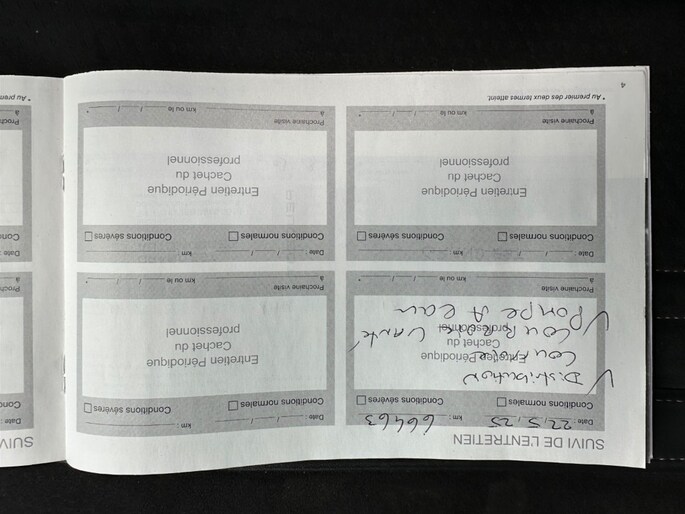 SUIVI DE L'ENTRETIEN
Date : 22/5/25 km : 66463
Conditions normales Conditions sévères
Entretien Périodique
Cachet du
professionnel
Distribution
Ponpe A eau
Prochaine visite
à km ou le / / *
Date : / / km :
Conditions normales Conditions sévères
Entretien Périodique
Cachet du
professionnel
Prochaine visite
à km ou le / / *
Date : / / km :
Conditions normales Conditions sévères
Entretien Périodique
Cachet du
professionnel
Prochaine visite
à km ou le / / *
Date : / / km :
Conditions normales Conditions sévères
Entretien Périodique
Cachet du
professionnel
Prochaine visite
à km ou le / / *
* Au premier des deux termes atteint.
4
SUIV
Date :
Cond
Proch
à
Date :
Cond
Proch
à
* Au premi